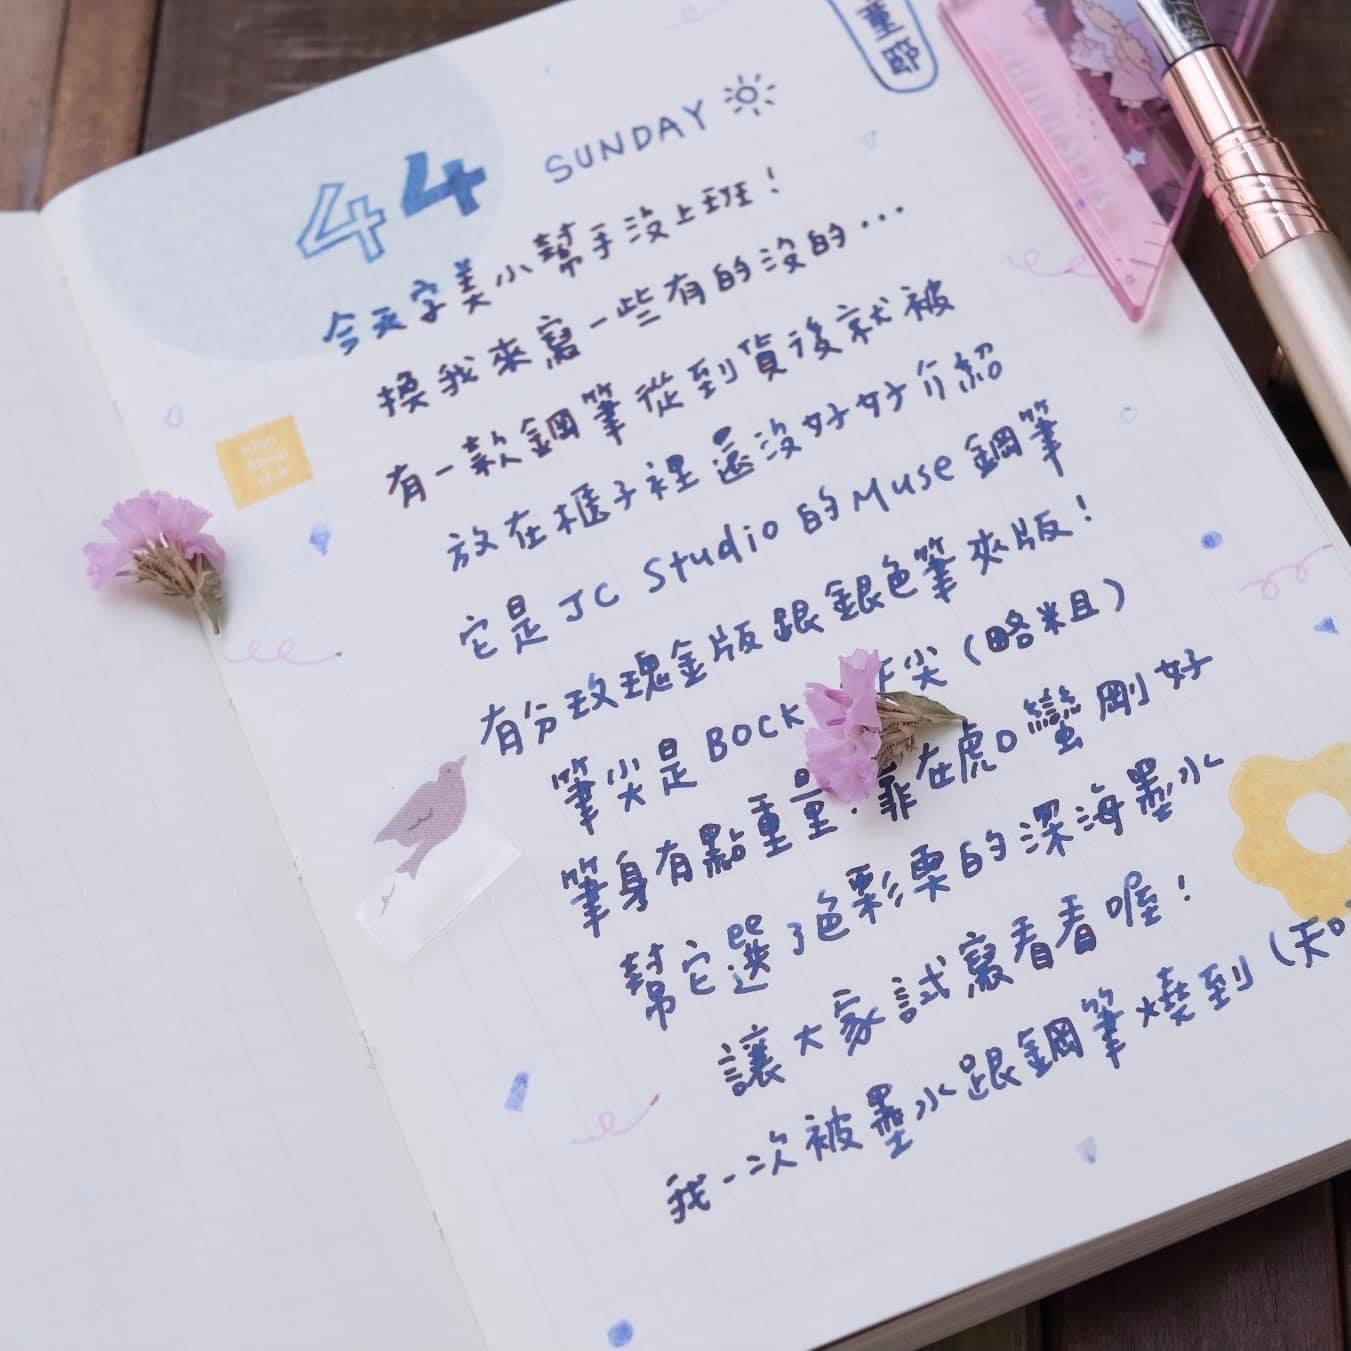 童節
44 SUNDAY
今天字美小幫手沒上班！
換我來寫一些有的沒的...
有一款鋼筆從到貨後就被
放在櫃子裡還沒好好介紹
它是JC Studio的Muse鋼筆
有分玫瑰金版跟銀色筆夾版！
筆尖是BOCK 尖（略粗）
筆身有點重量．靠在虎口蠻剛好
幫它選了色彩栗的深海墨水
讓大家試寫看看喔！
我一次被墨水跟鋼筆燒到（天